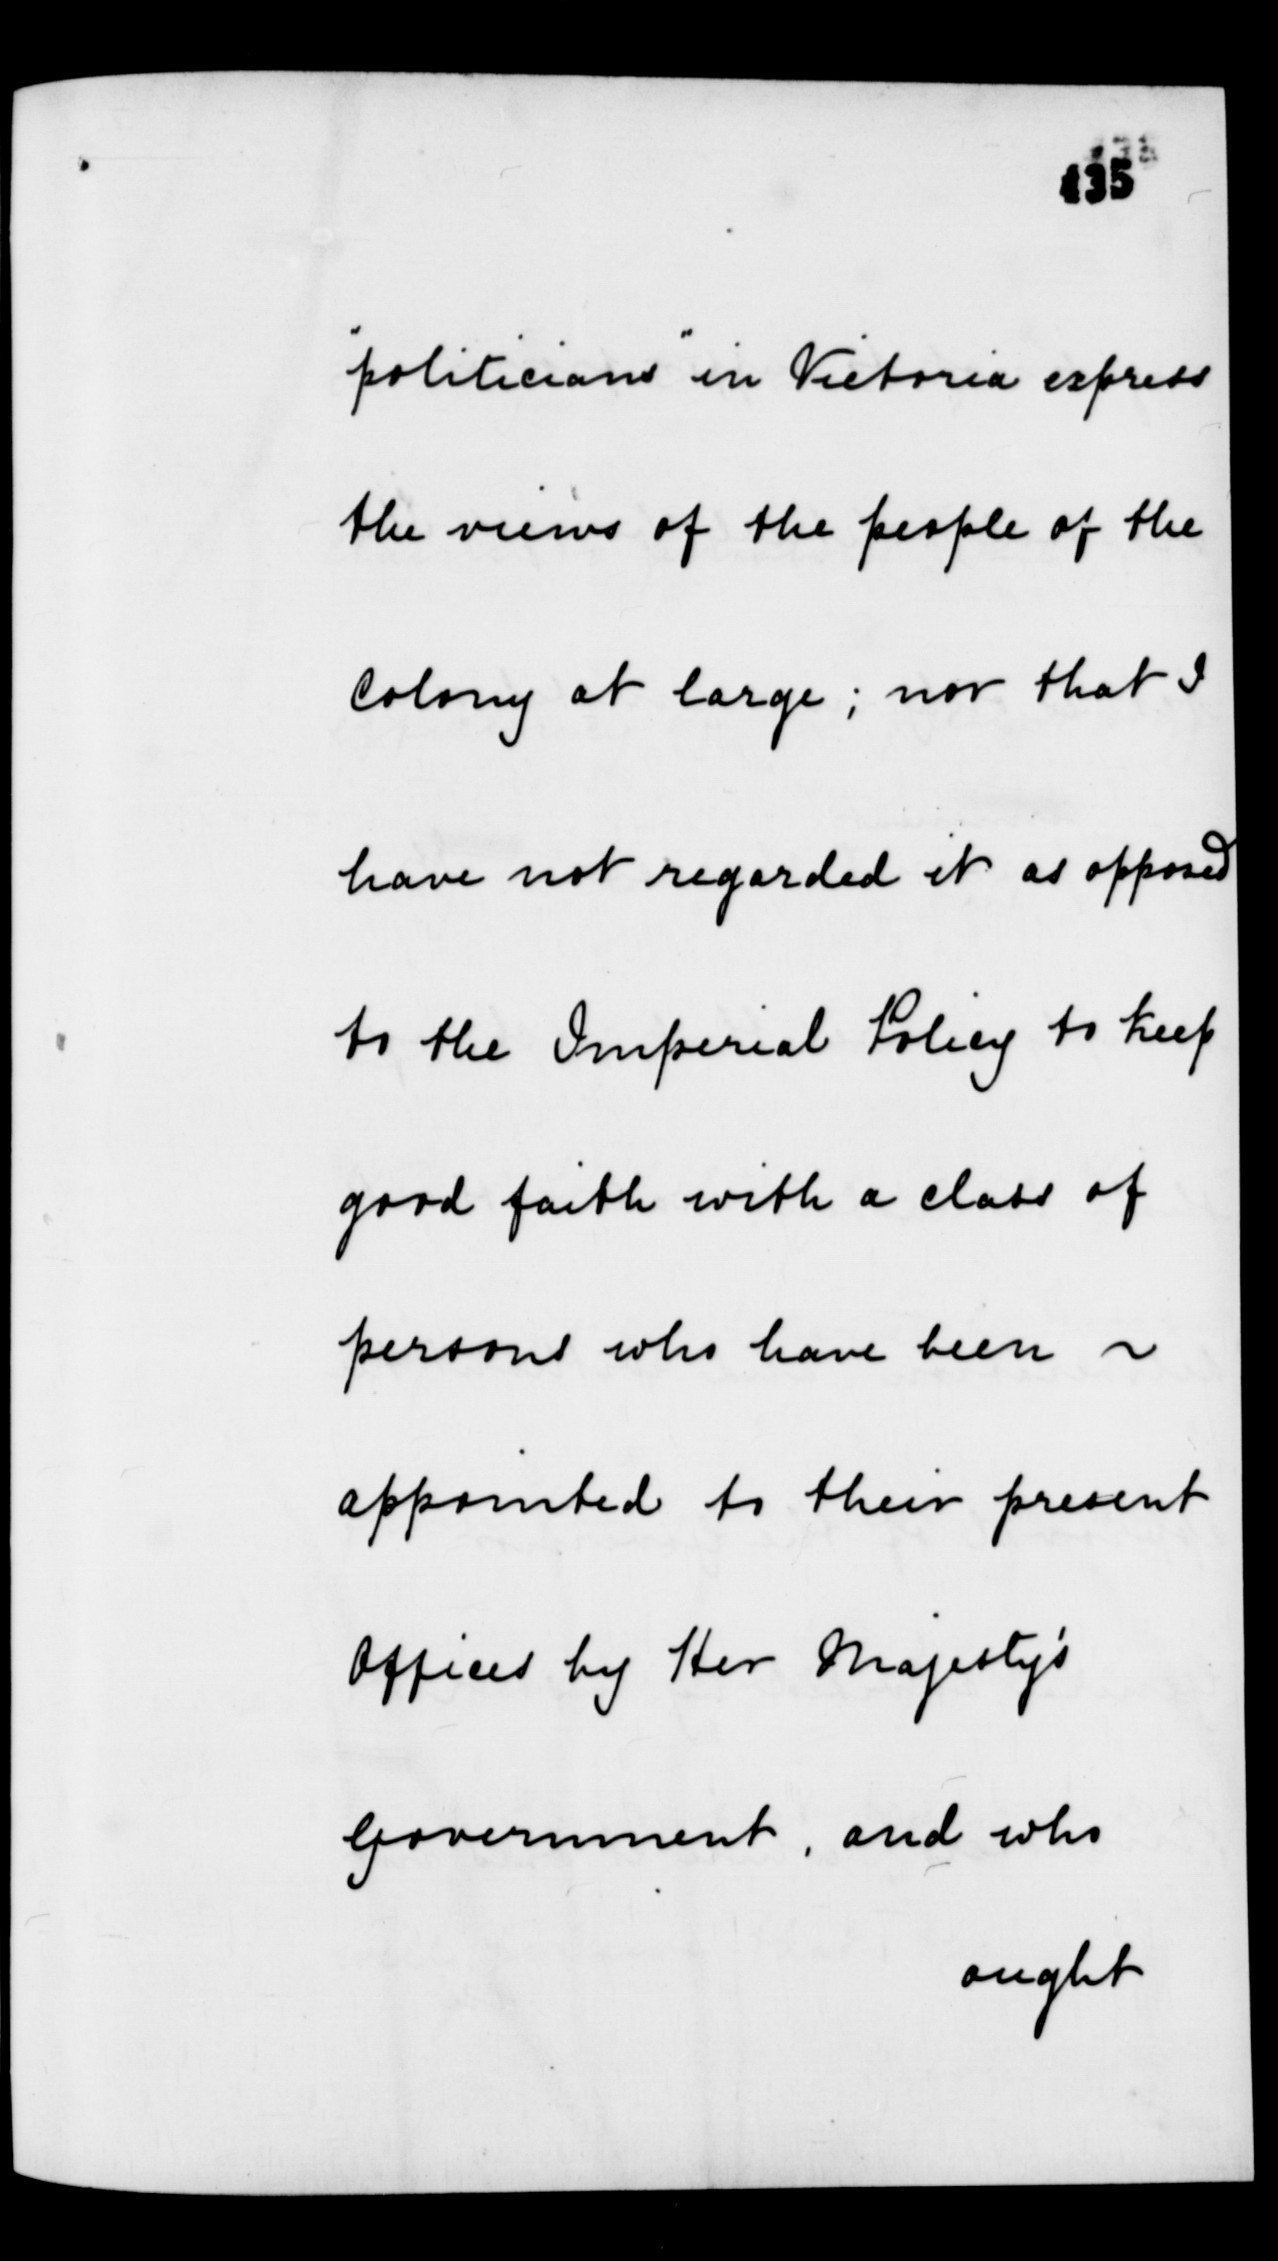 435
"politicians" in Victoria express
the views of the people of the
Colony at large; nor that I
have not regarded it as opposed
to the Imperial Policy to keep
good faith with a class of
persons who have been ~
appointed to their present
Offices by Her Majesty's
Government, and who
ought